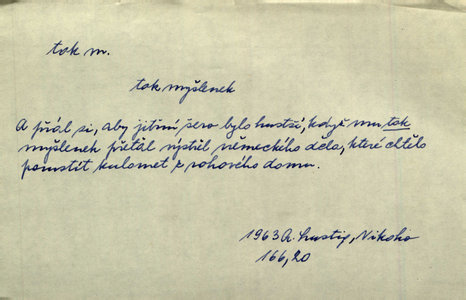 tok m.
tok myšlenek
A přál si, aby jitřní šero bylo hustší, když mu tok
myšlenek přeťal výstřel německého děla, které chtělo
porustit kulomet z rohového domu.
1963 A. Lustig, Nikoho
166,20